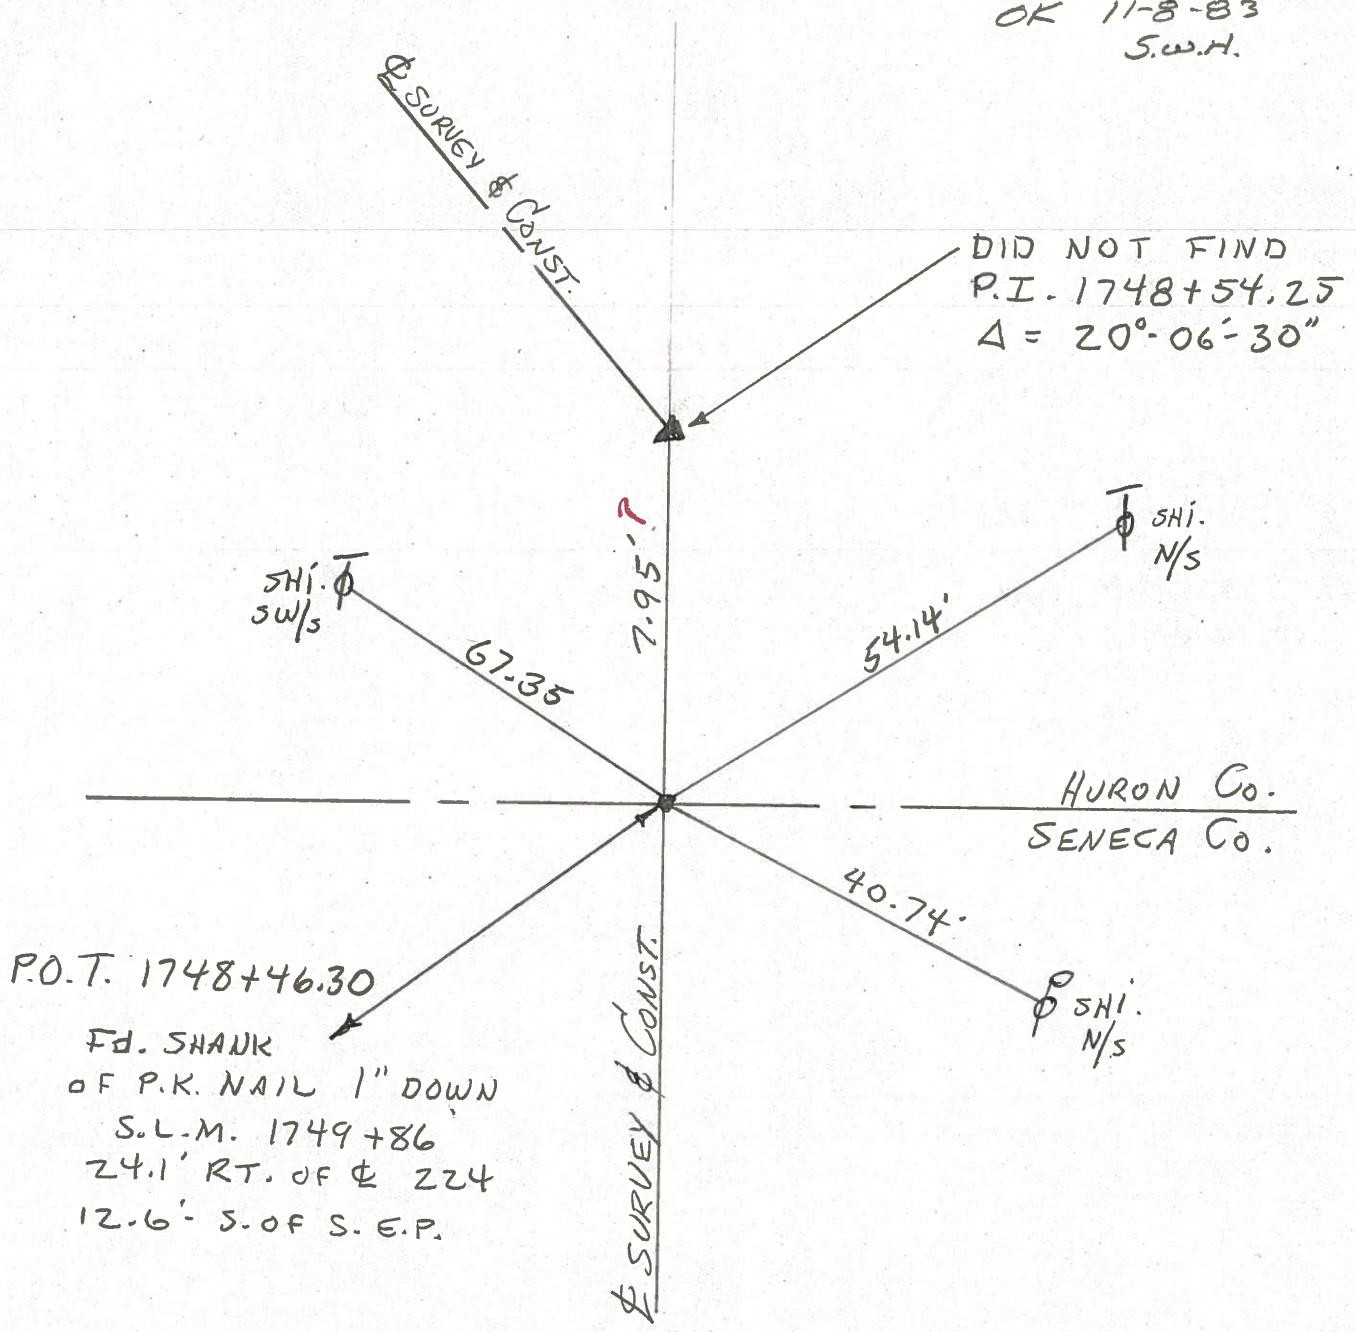 OK 11-8-83
S.W.H.
℄ SURVEY & CONST.
DID NOT FIND
P.I. 1748+54.25
Δ = 20°-06'-30"
7.95'?
SHI.
N/S
SHI.
SW/S
67.35
54.14'
HURON CO.
SENECA CO.
40.74'
P.O.T. 1748+46.30
Fd. SHANK
OF P.K. NAIL 1" DOWN
S.L.M. 1749+86
24.1' RT. OF ℄ 224
12.6'- S. OF S.E.P.
SHI.
N/S
℄ SURVEY & CONST.